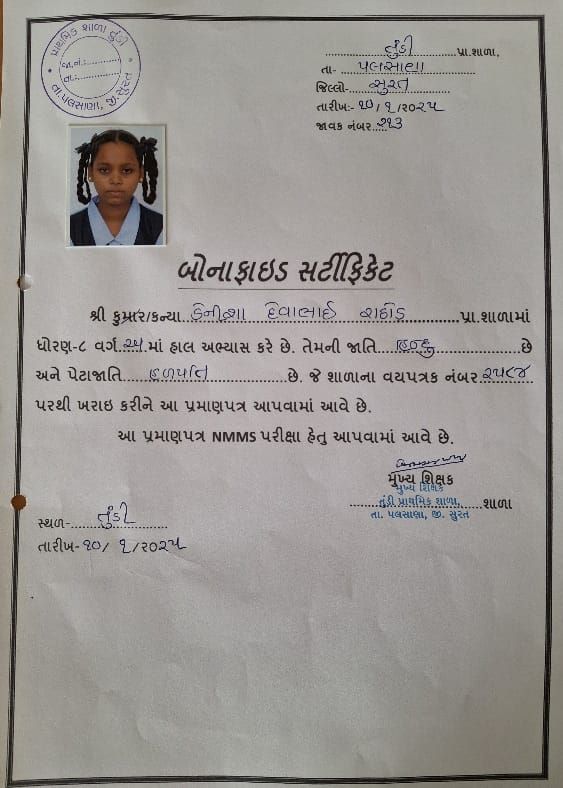 પ્રાથમિક શાળા તુંડી
જા.નં.:
તા.:
તા.પલસાણા, જી.સુરત
તુંડી પ્રા.શાળા,
તા- પલસાણા
જિલ્લો- સુરત
તારીખ:- ૧૦/૧/૨૦૨૫
જાવક નંબર ૨૧૩
બોનાફાઇડ સર્ટીફિકેટ
શ્રી કુમાર/કન્યા દેવાભાઈ રાઠોડ પ્રા.શાળામાં
ધોરણ-૮ વર્ગ માં હાલ અભ્યાસ કરે છે. તેમની જાતિ હિન્દુ છે
અને પેટાજાતિ હળપતિ છે. જે શાળાના વયપત્રક નંબર ૨૫૮૪
પરથી ખરાઇ કરીને આ પ્રમાણપત્ર આપવામાં આવે છે.
આ પ્રમાણપત્ર NMMS પરીક્ષા હેતુ આપવામાં આવે છે.
મુખ્ય શિક્ષક
મુખ્ય શિક્ષક
તુંડી પ્રાથમિક શાળા, શાળા
તા. પલસાણા, જી. સુરત
સ્થળ- તુંડી
તારીખ- ૧૦/૧/૨૦૨૫